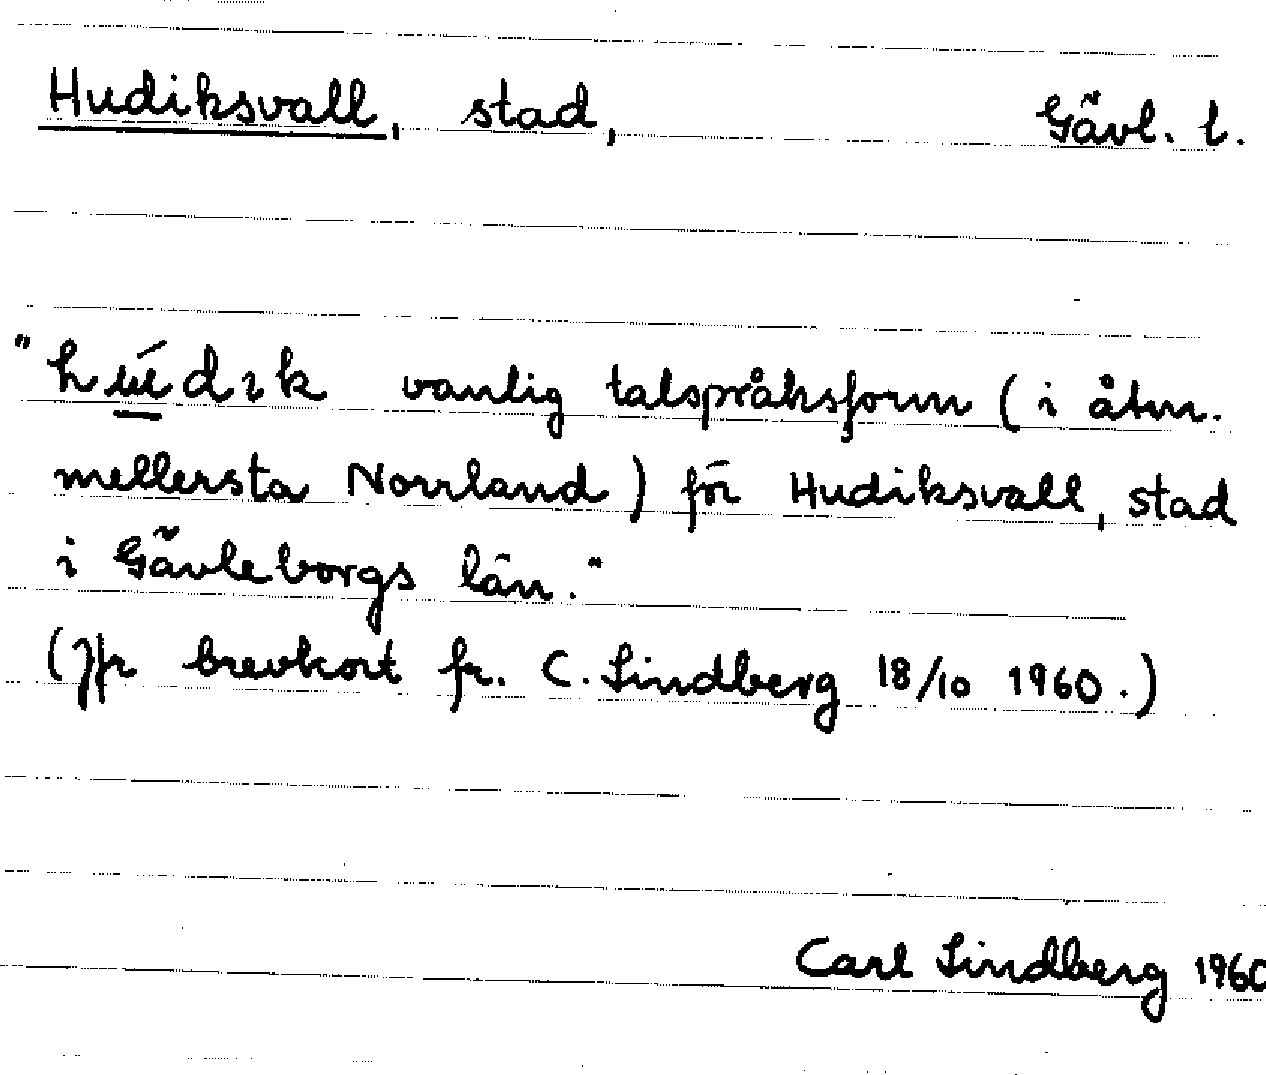 Hudiksvall, stad, Gävl. l.
"hú̲dık vanlig talspråksform (i åtm.
mellersta Norrland) för Hudiksvall, stad
i Gävleborgs län."
(Jfr brevkort fr. C. Lindberg 18/10 1960.)
Carl Lindberg 1960